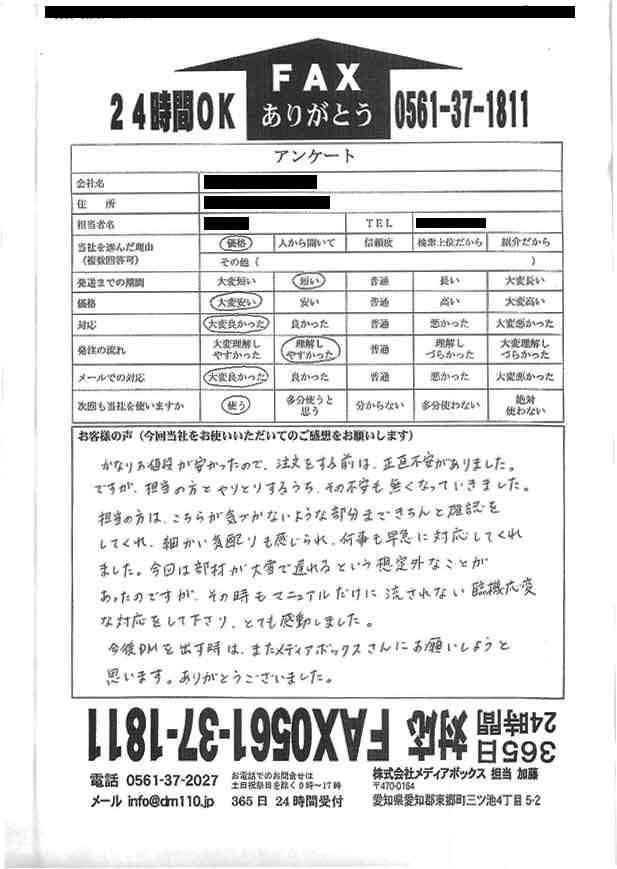 FAX
ありがとう
24時間OK
0561-37-1811
アンケート
会社名
住 所
担当者名 TEL
当社を選んだ理由 (複数回答可) 価格 人から聞いて 信頼度 検索上位だから 紹介だから
その他( )
発送までの期間 大変短い 短い 普通 長い 大変長い
価格 大変安い 安い 普通 高い 大変高い
対応 大変良かった 良かった 普通 悪かった 大変悪かった
発注の流れ 大変理解しやすかった 理解しやすかった 普通 理解しづらかった 大変理解しづらかった
メールでの対応 大変良かった 良かった 普通 悪かった 大変悪かった
次回も当社を使いますか 使う 多分使うと思う 分からない 多分使わない 絶対使わない
お客様の声(今回当社をお使いいただいてのご感想をお願いします)
かなりお値段が安かったので、注文をする前は、正直不安がありました。
ですが、担当の方とやりとりするうち、その不安も無くなっていきました。
担当の方は、こちらが気づかないような部分まできちんと確認を
してくれ、細かい気配りも感じられ、何事も早急に対応してくれ
ました。今回は部材が大雪で遅れるという想定外なことが
あったのですが、その時もマニュアルだけに流されない臨機応変
な対応をして下さり、とても感動しました。
今後DMを出す時は、またメディアボックスさんにお願いしようと
思います。ありがとうございました。
365日
24時間
対応 FAX0561-37-1811
電話 0561-37-2027
メール info@dm110.jp
お電話でのお問合せは
土日祝祭日を除く9時〜17時
365日 24時間受付
株式会社メディアボックス 担当 加藤
〒470-0164
愛知県愛知郡東郷町三ツ池4丁目 5-2